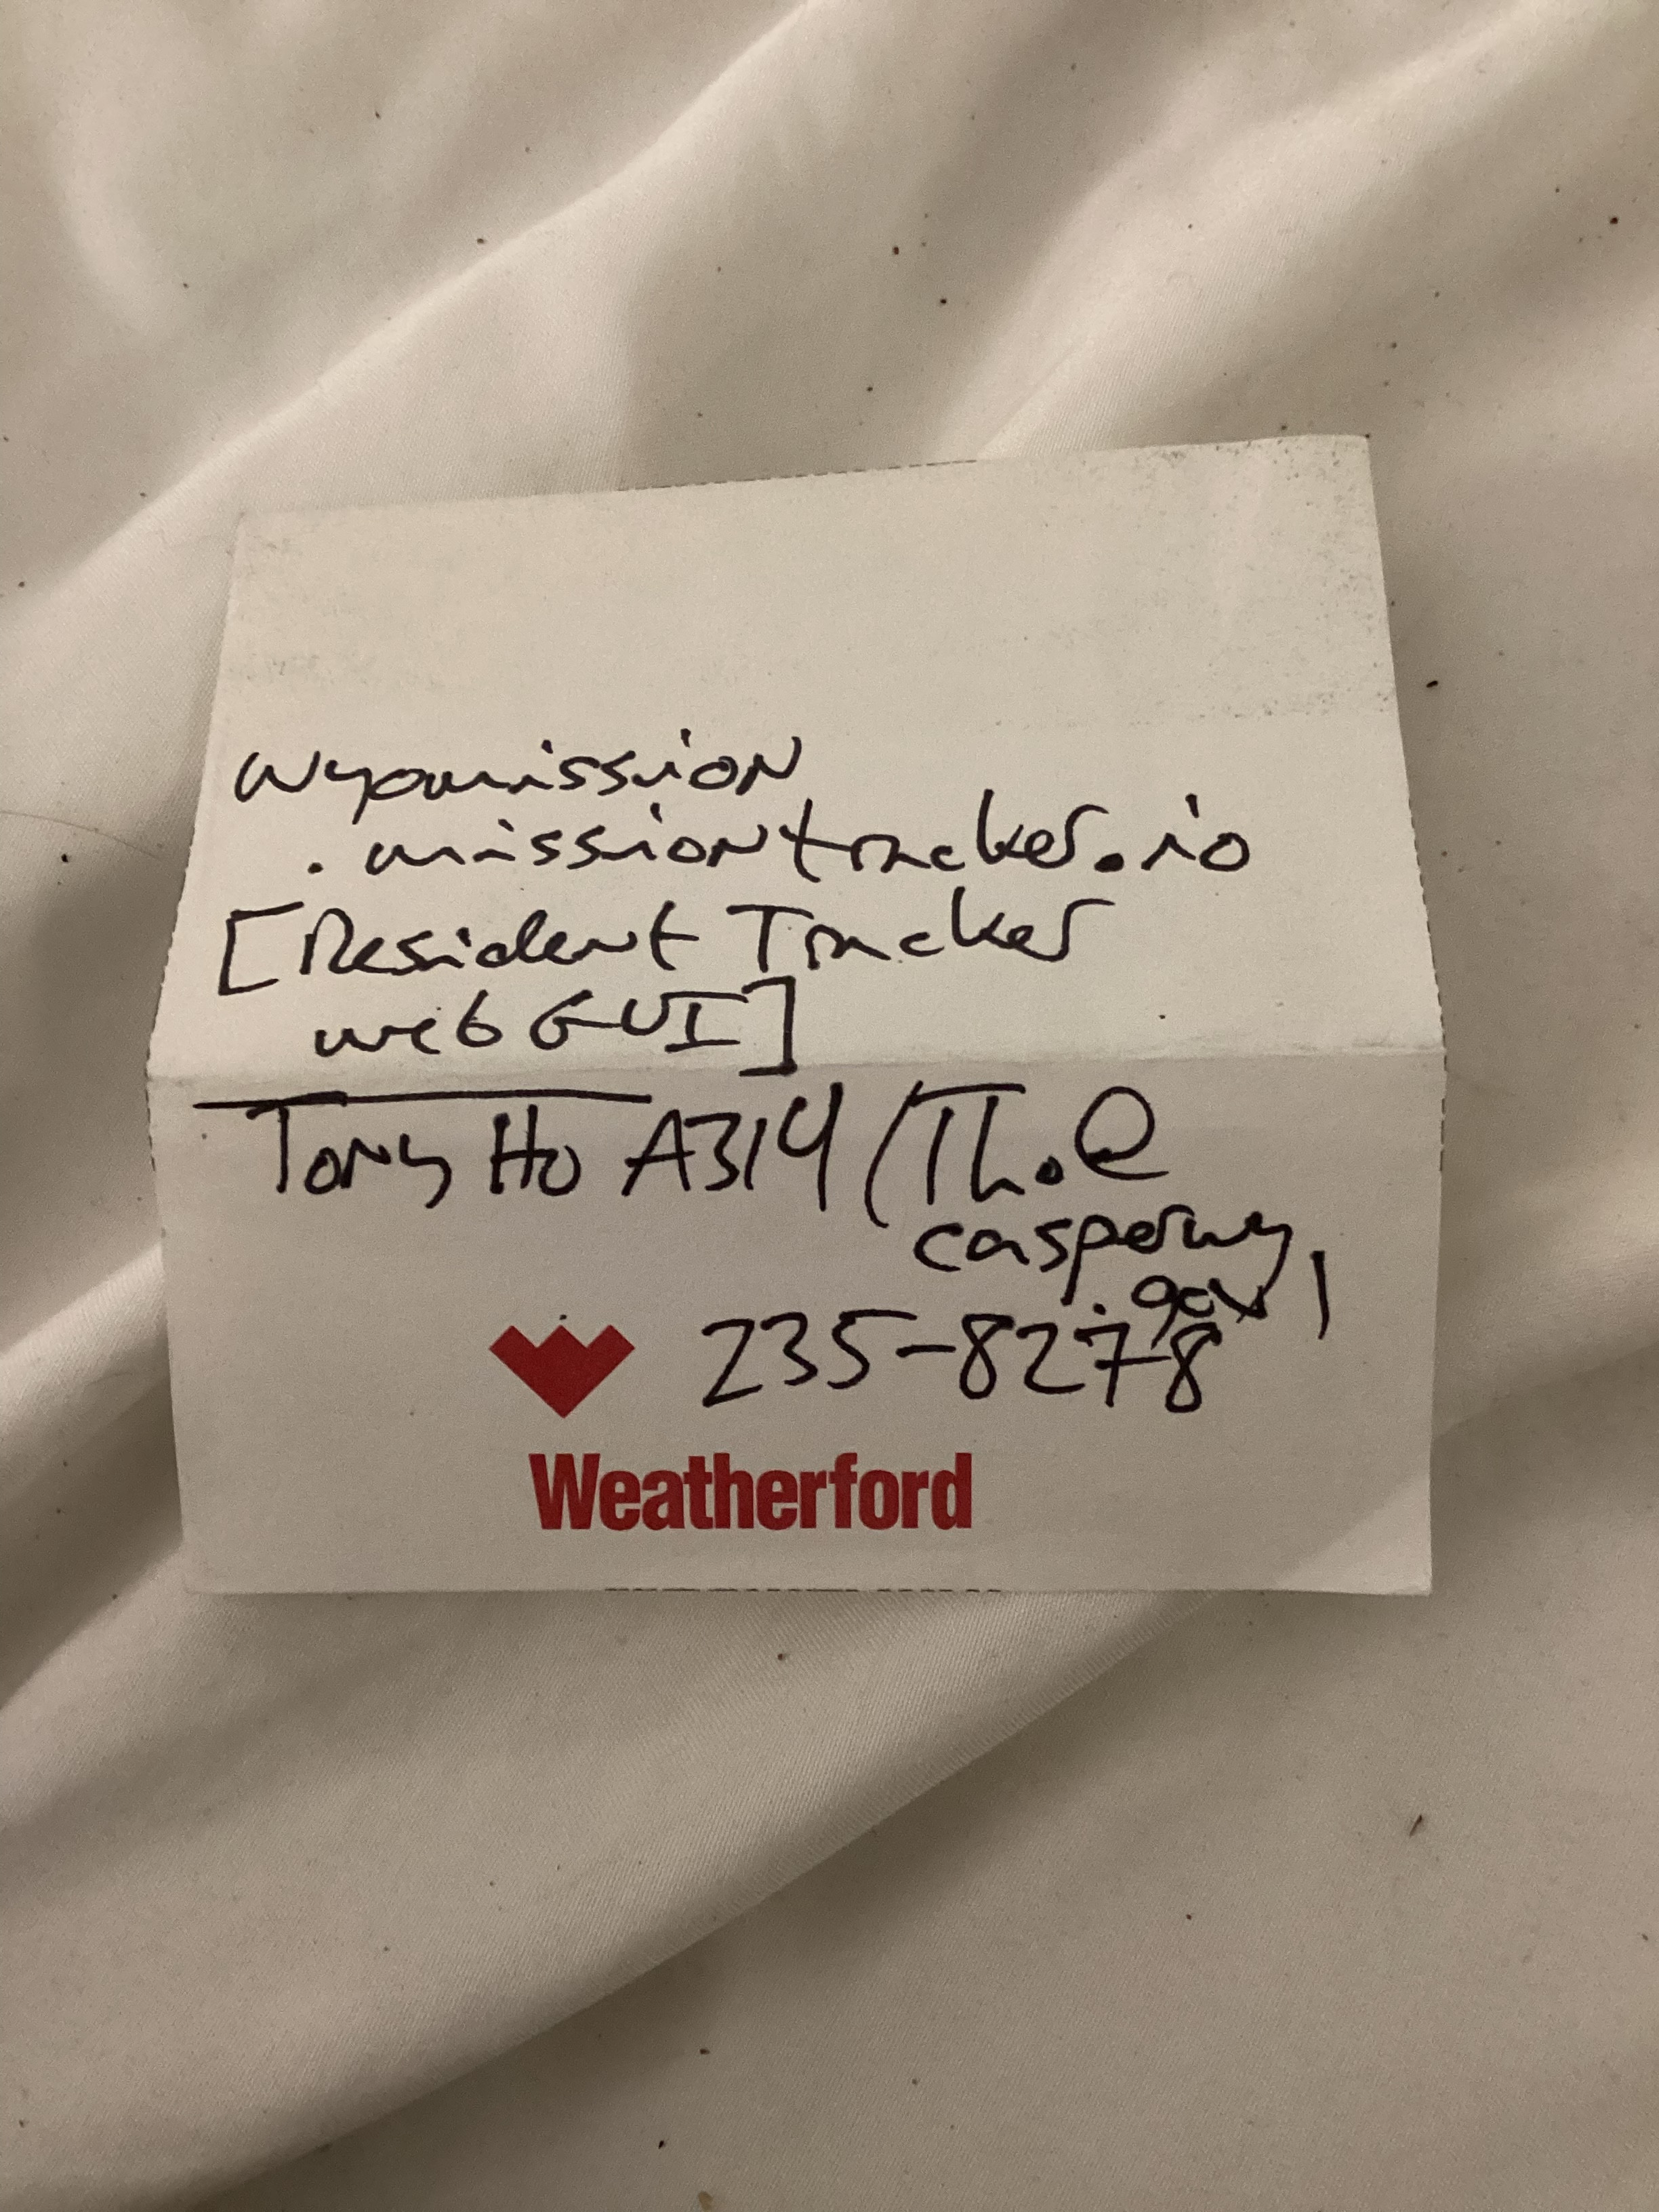 wyomission
.missiontracker.io
[Resident Tracker
web GUI]
Tony Ho A314 (Tho@
casperwy
.gov)
235-8278
Weatherford